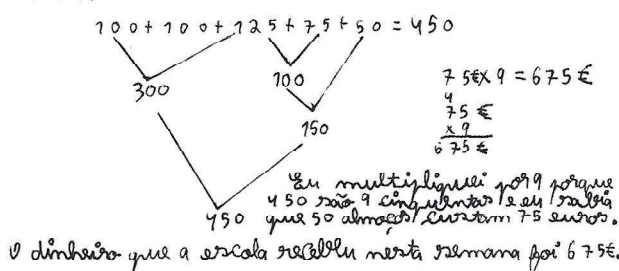 100 + 100 + 125 + 75 + 50 = 450
300
100
150
450
75€ x 9 = 675€
4
75 €
x 9
675 €
Eu multipliquei por 9 porque
450 são 9 cinquentas e eu sabia
que 50 almoços custam 75 euros.
O dinheiro que a escola recebeu nesta semana foi 675€.